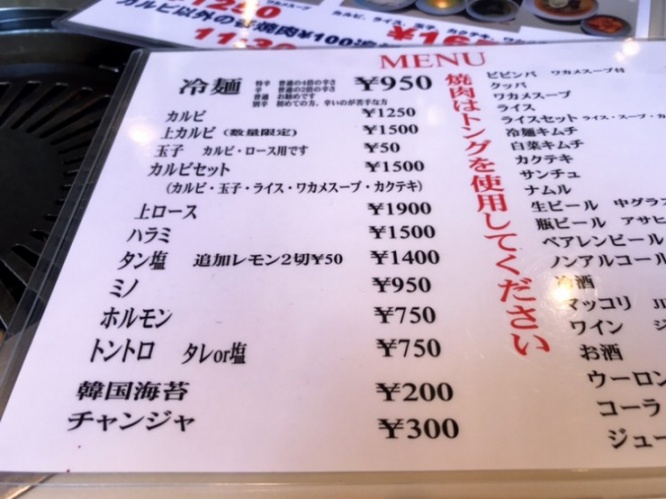 カルビ、ライス、玉子、カクテキ、ワカ
カルビ以外のぜ焼肉¥100
11:30
MENU
冷麺 ¥950
特辛 普通の4倍の辛さ
辛 普通の2倍の辛さ
普通 お勧めです
別辛 初めての方、辛いのが苦手な方
カルビ ¥1250
上カルビ (数量限定) ¥1500
玉子 カルビ・ロース用です ¥50
カルビセット ¥1500
(カルビ・玉子・ライス・ワカメスープ・カクテキ)
上ロース ¥1900
ハラミ ¥1500
タン塩 追加レモン2切¥50 ¥1400
ミノ ¥950
ホルモン ¥750
トントロ タレor塩 ¥750
韓国海苔 ¥200
チャンジャ ¥300
焼肉はトングを使用してください
ビビンバ ワカメスープ付
クッパ
ワカメスープ
ライス
ライスセット ライス・スープ・カ
冷麺キムチ
白菜キムチ
カクテキ
サンチュ
ナムル
生ビール 中グラス
瓶ビール アサヒ
ベアレンビール
ノンアルコール
冷酒
マッコリ
ワイン
お酒
ウーロン
コーラ
ジュー